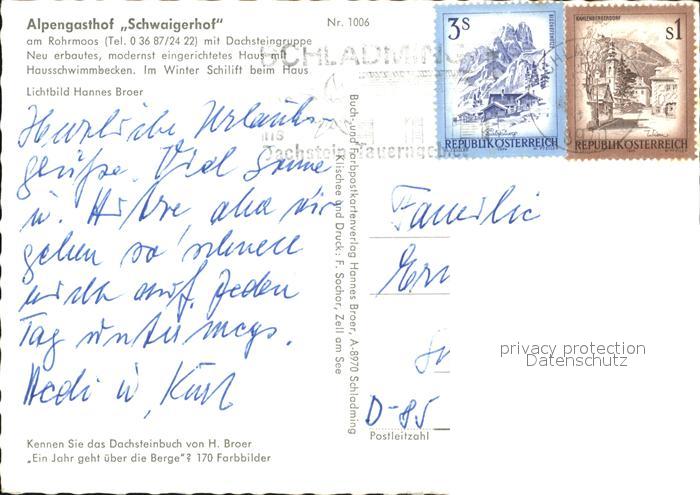 Alpengasthof „Schwaigerhof“
Nr. 1006
am Rohrmoos (Tel. 0 36 87/24 22) mit Dachsteingruppe
Neu erbautes, modernst eingerichtetes Haus mit
Hausschwimmbecken. Im Winter Schilift beim Haus
Lichtbild Hannes Broer
SCHLADMING
Dachstein-Tauerngebiet
3S
REPUBLIK ÖSTERREICH
KAHLENBERGERDORF
S1
REPUBLIK ÖSTERREICH
Herzliche Urlaubs-
grüße. Viel Sonne
u. Hitze, aber wir
geben so schnell
nicht auf. Jeden
Tag unterwegs.
Hedi u. Kurt
Buch- und Farbpostkartenverlag Hannes Broer, A-8970 Schladming
Klischee und Druck: F. Sochor, Zell am See
Familie
D-85
Postleitzahl
privacy protection
Datenschutz
Kennen Sie das Dachsteinbuch von H. Broer
„Ein Jahr geht über die Berge“? 170 Farbbilder